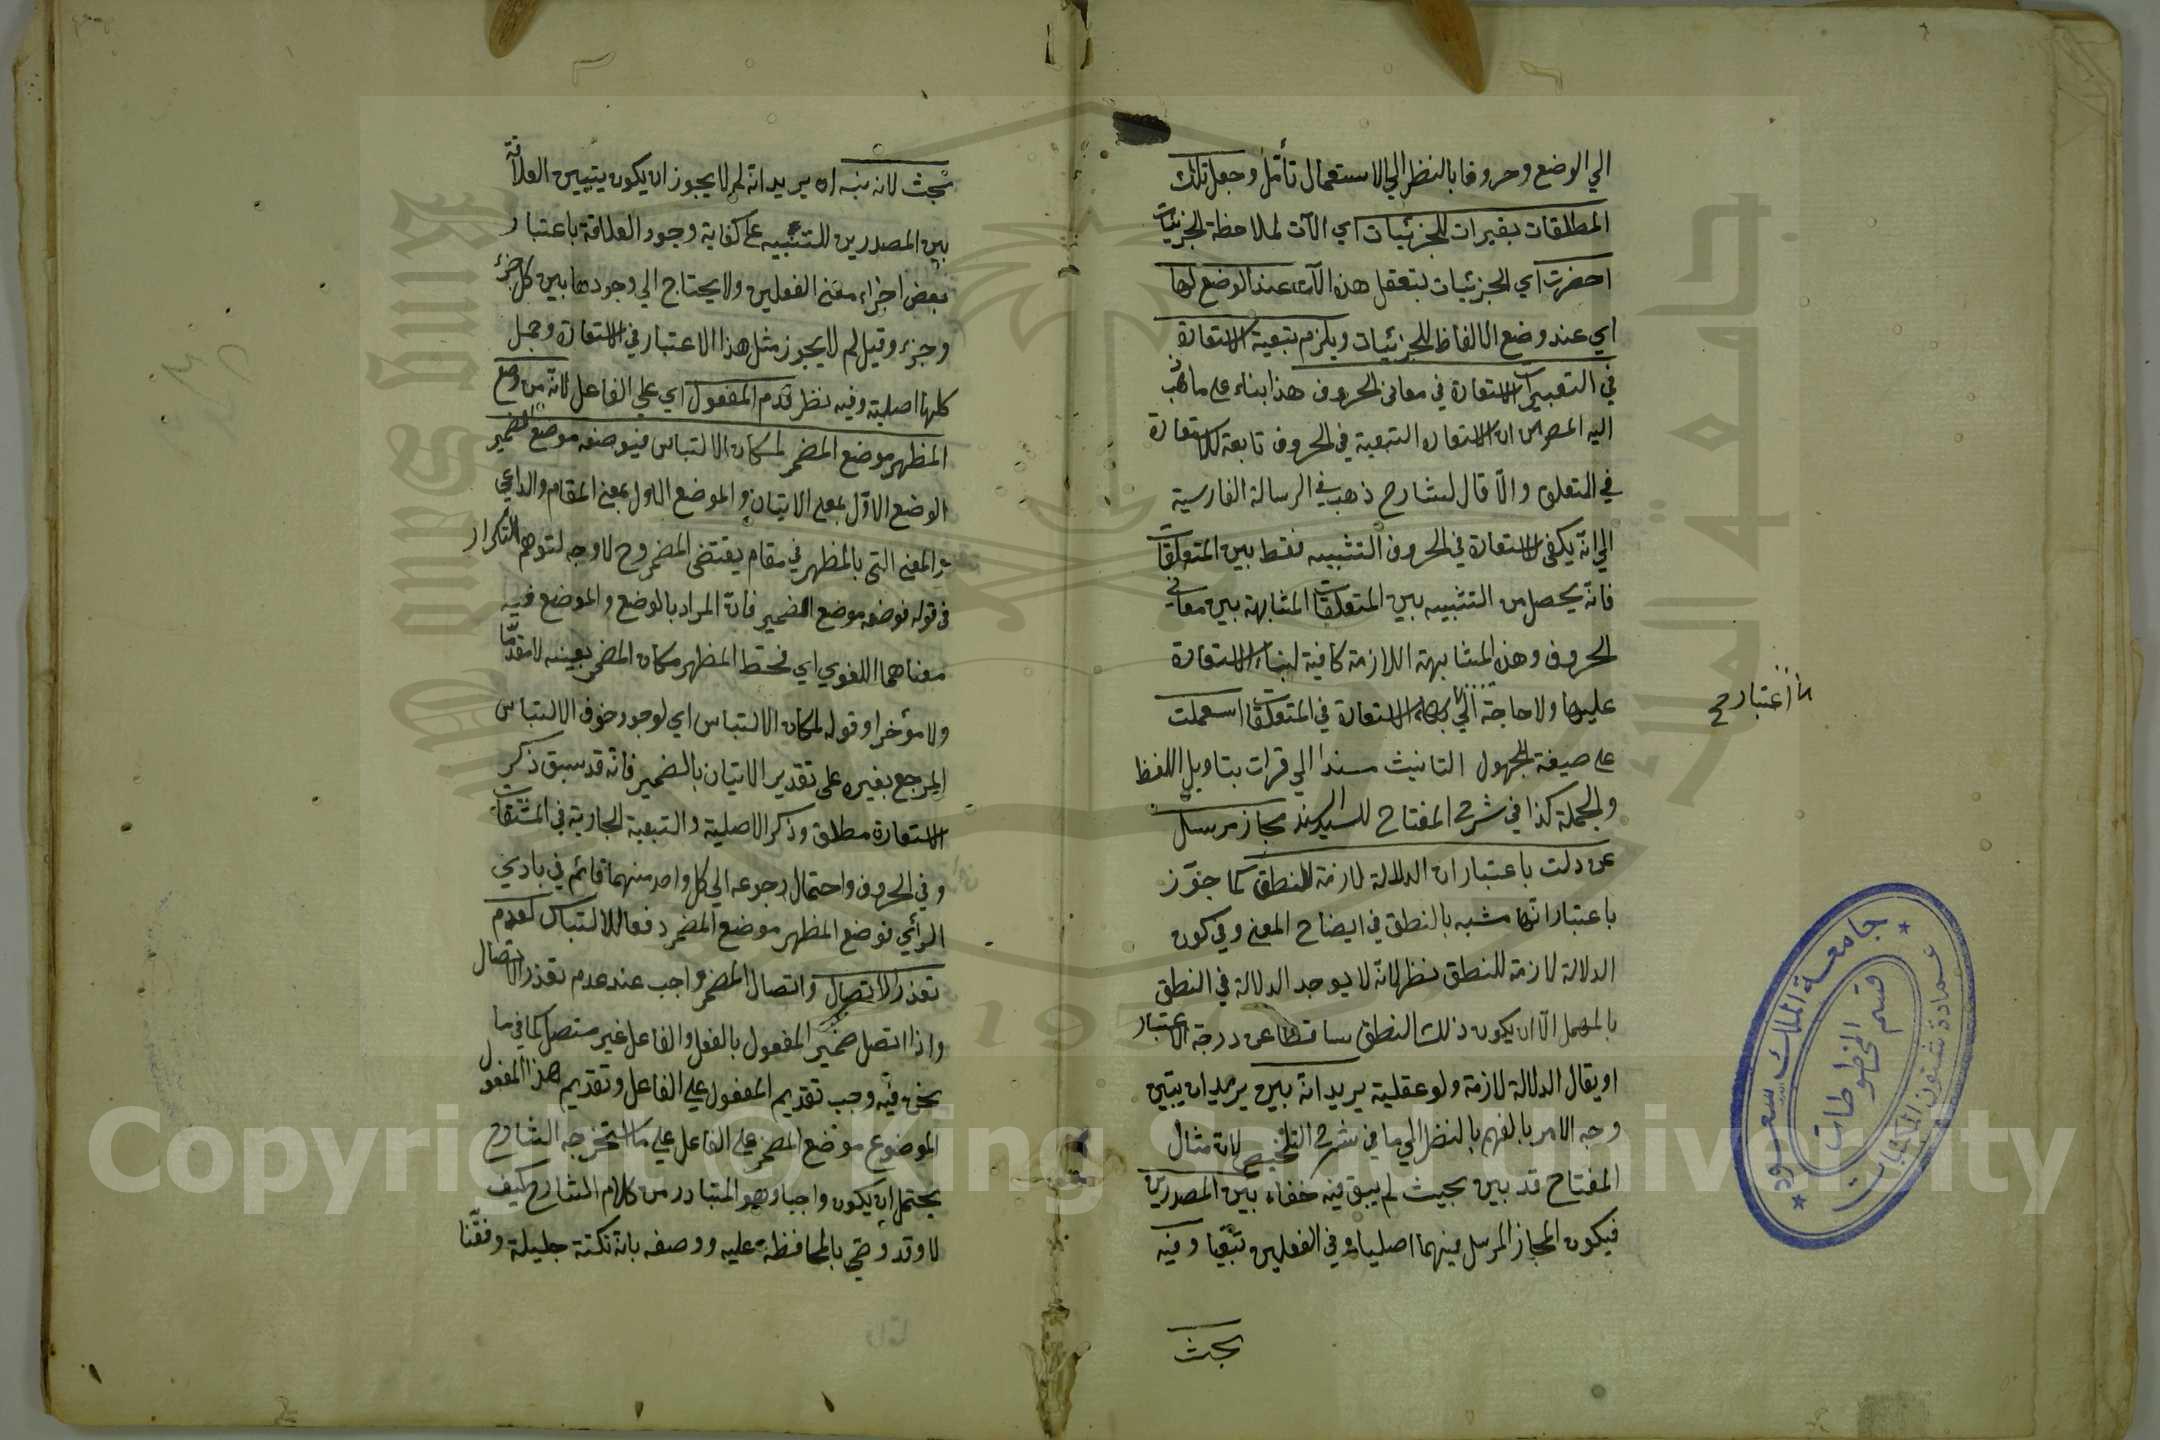 الي الوضع وحروفا بالنظر الي الاستعمال تأمل وجعل تلك
المطلقات بقيرات للجزئيات اي الآت لملاحظة الجزئيات
احضرت اي الجزئيات بتعقل هذه الآت عند الوضع لها
اي عند وضع الالفاظ للجزئيات ويلزم بتبعية الاستعارة
في التعبيرات الاستعارة في معاني الحروف هذا بناء على ما ذهب
اليه المص من ان الاستعارة التبعية في الحروف تابعة للاستعارة
في المتعلق والا قال الشارح ذهب في الرسالة الفارسية
الي انه يكفي الاستعارة في الحروف التشبيه فقط بين المتعلقات
فانه يحصل من التشبيه بين المتعلقات المشابهة بين معاني
الحروف وهذه المشابهة اللازمة كافية لبناء الاستعارة
عليها ولا حاجة الي الاستعارة في المتعلقات استعملت
على صيغة المجهول التانيث مسندا الي قرات بتاويل اللفظ
والجملة كذا في شرح المفتاح للسيد السند مجاز مرسل
عن دلت باعتبار ان الدلالة لازمة للنطق كما جوز
باعتبار انها مشبه بالنطق في ايضاح المعنى وفي كون
الدلالة لازمة للنطق نظر لانه لا يوجد الدلالة في النطق
بالمهمل الا ان يكون ذلك النطق ساقطا عن درجة الاعتبار
او يقال الدلالة لازمة ولو عقلية يريد انه بين يريد ان يتبين
وجه الامر بالفهم بالنظر الي ما في شرح التلخيص لان مثال
المفتاح قد بين بحيث لم يبق فيه خفاء بين المصدرين
فيكون المجاز المرسل فيهما اصليا وفي الفعلين تبعيا وفيه
بحث
اعتبار صح
بحث لانه نبه اه يريد انه لم لا يجوز ان يكون يتبين العلاقة
بين المصدرين للتنبيه على كفاية وجود العلاقة باعتبار
بعض اجزاء معنى الفعلين ولا يحتاج الي وجودها بين كل جزء
وجزء وقيل لم لا يجوز مثل هذا الاعتبار في الاستعارة وجعل
كلها اصلية وفيه نظر قدم المفعول اي على الفاعل لانه من وضع
المظهر موضع المضمر لمكان الالتباس فيوضعه موضع الضمير
الوضع الاول بمعنى الاتيان والموضع الاول بمعنى المقام والداعي
والمعنى التي بالمظهر في مقام يقتضي المضمر وح لا وجه لتوهم التكرار
في قوله فوضعه موضع الضمير فان المراد بالوضع والموضع فيه
معناهما اللغوي اي فحط المظهر مكان المضمر بعينه لا مقدما
ولا مؤخرا وقوله لمكان الالتباس اي لوجود خوف الالتباس
المرجع بغيره على تقدير الاتيان بالضمير فانه قد سبق ذكر
الاستعارة مطلق وذكر الاصلية والتبعية الجارية في المشتقات
وفي الحروف واحتمال رجوعه الي كل واحد منهما قائم في بادي
الرأي فوضع المظهر موضع المضمر دفعا للالتباس لعدم
تعذر الاتصال واتصال المضمر واجب عند عدم تعذر الاتصال
واذا اتصل ضمير المفعول بالفعل والفاعل غير متصل كما في ما
نحن فيه وجب تقديم المفعول على الفاعل وتقديم هذا المفعول
الموضوع موضع المضمر على الفاعل على ما استخرجه الشارح
يحتمل ان يكون واجبا وهو المتبادر من كلام الشارح كيف
لا وقد وصي بالمحافظة عليه ووصفه بانه نكتة جليلة وفقنا
جامعة الملك سعود
عمادة شئون المكتبات
قسم المخطوطات
Copyright © King Saud University